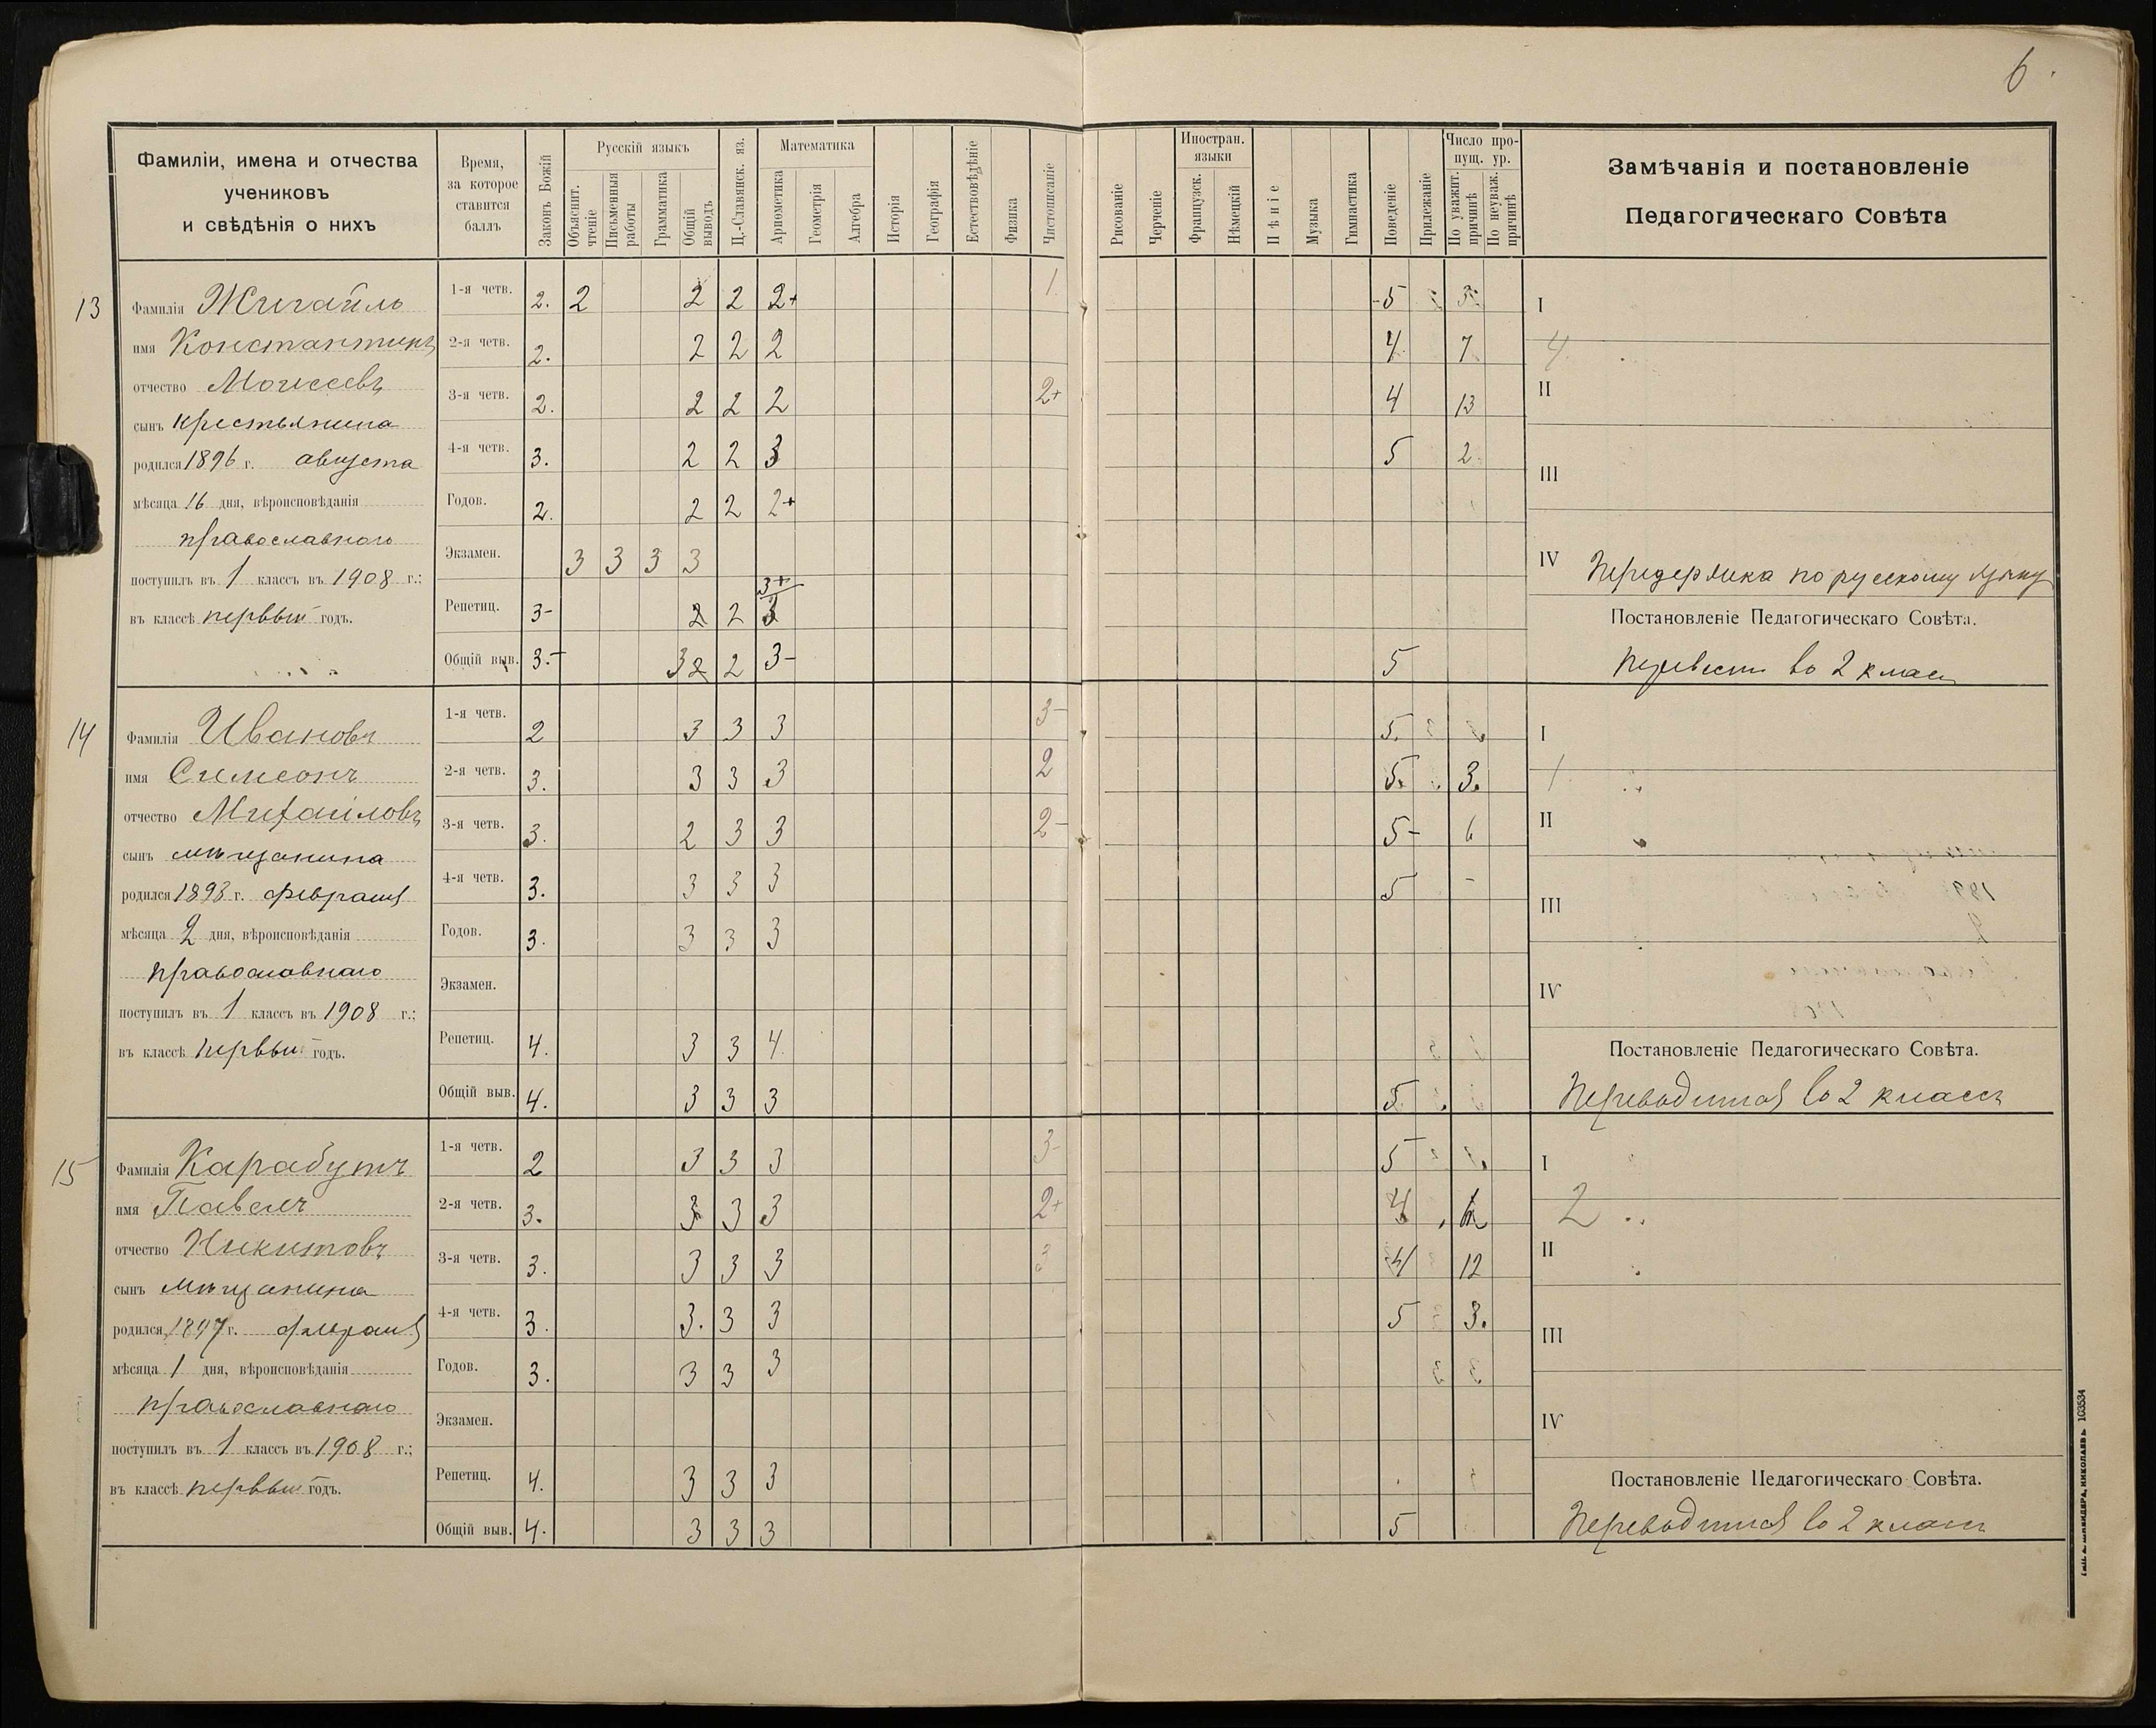 6
Фамиліи, имена и отчества
учениковъ
и свѣдѣнія о нихъ
Время,
за которое
ставится
баллъ
Законъ Божій
Русскій языкъ
Объяснит. чтеніе
Письменныя работы
Грамматика
Общій выводъ
Ц.-Славянск. яз.
Математика
Ариѳметика
Геометрія
Алгебра
Исторія
Географія
Естествовѣдѣніе
Физика
Чистописаніе
Рисованіе
Черченіе
Иностран. языки
Французск.
Нѣмецкій
Пѣніе
Музыка
Гимнастика
Поведеніе
Прилежаніе
Число пропущ. ур.
По уважит. причинѣ
По неуваж. причинѣ
Замѣчанія и постановленіе
Педагогическаго Совѣта
13
Фамилія Жигайло
имя Константинъ
отчество Моисеевъ
сынъ крестьянина
родился 1896 г. августа
мѣсяца 16 дня, вѣроисповѣданія
православнаго
поступилъ въ 1 классъ въ 1908 г.:
въ классѣ первый годъ.
1-я четв. 2. 2 2 2 2+ 1 5 3
2-я четв. 2. 2 2 2 4 7
3-я четв. 2. 2 2 2 2+ 4 13
4-я четв. 3. 2 2 3 5 2
Годов. 2. 2 2 2+
Экзамен. 3 3 3 3
Репетиц. 3- 2 2 3+ 3
Общій выв. 3- 3 2 2 3- 5
I
4
II
III
IV Передержка по русскому языку
Постановленіе Педагогическаго Совѣта.
Перевести во 2 класс
14
Фамилія Ивановъ
имя Симеонъ
отчество Михаиловъ
сынъ мѣщанина
родился 1893 г. февраля
мѣсяца 2 дня, вѣроисповѣданія
православнаго
поступилъ въ 1 классъ въ 1908 г.:
въ классѣ первый годъ.
1-я четв. 2 3 3 3 3- 5.
2-я четв. 3. 3 3 3 2 5. 3.
3-я четв. 3. 2 3 3 2- 5- 6
4-я четв. 3. 3 3 3 5 -
Годов. 3. 3 3 3
Экзамен.
Репетиц. 4. 3 3 4
Общій выв. 4. 3 3 3 5.
I
1
II
III
IV
Постановленіе Педагогическаго Совѣта.
Переводится во 2 классъ
15
Фамилія Карабутъ
имя Павелъ
отчество Никитовъ
сынъ мѣщанина
родился 1897 г. февраля
мѣсяца 1 дня, вѣроисповѣданія
православнаго
поступилъ въ 1 классъ въ 1908 г.;
въ классѣ первый годъ.
1-я четв. 2 3 3 3 3- 5
2-я четв. 3. 3 3 3 2+ 4
3-я четв. 3. 3 3 3 3 4 12
4-я четв. 3. 3. 3 3 5 3.
Годов. 3. 3 3 3
Экзамен.
Репетиц. 4. 3 3 3
Общій выв. 4. 3 3 3 5
I
2
II
III
IV
Постановленіе Педагогическаго Совѣта.
Переводится во 2 классъ
НИКОЛАЕВЪ 103534